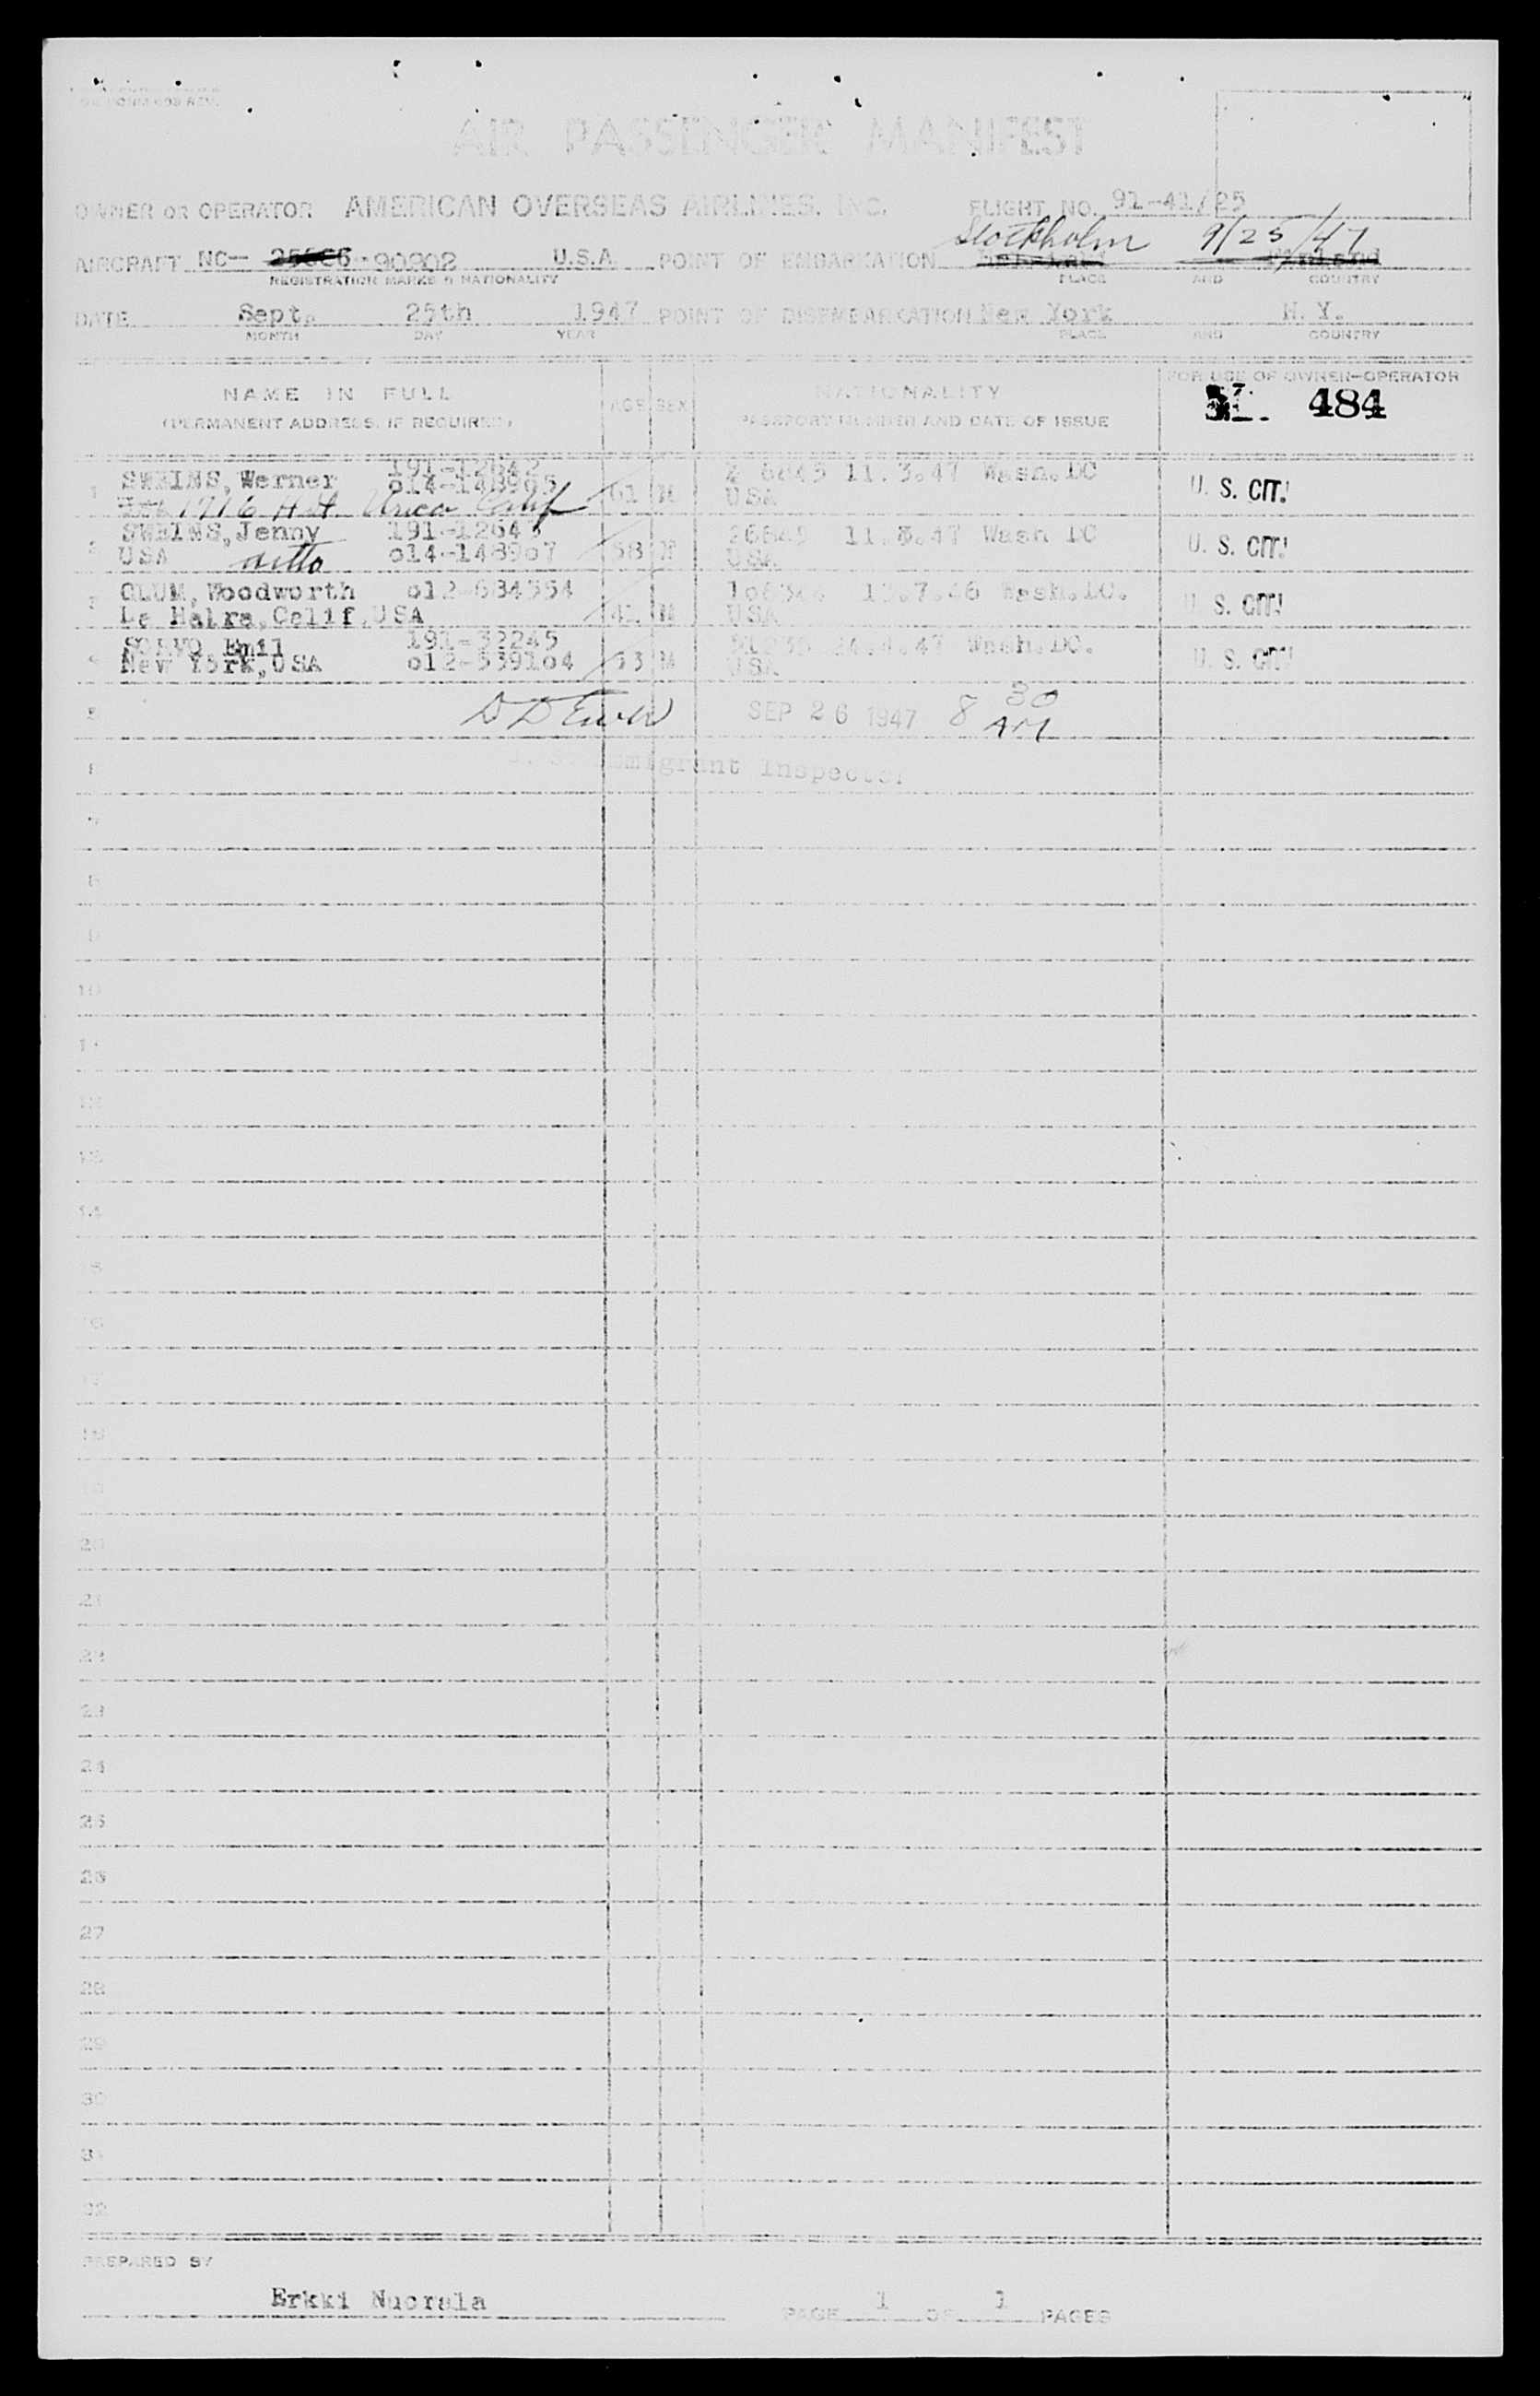 AIR PASSENGER MANIFEST
OWNER OR OPERATOR AMERICAN OVERSEAS AIRLINES, INC. FLIGHT NO. 91-41/25
Stockholm 9/25/47
AIRCRAFT NC- 90902 U.S.A. POINT OF EMBARKATION Finland
REGISTRATION MARKS & NATIONALITY PLACE AND COUNTRY
DATE Sept. 25th 1947 POINT OF DISEMBARKATION New York N.Y.
MONTH DAY YEAR PLACE AND COUNTRY
NAME IN FULL AGE SEX NATIONALITY FOR USE OF OWNER-OPERATOR
(PERMANENT ADDRESS, IF REQUIRED) PASSPORT NUMBER AND DATE OF ISSUE 484
191-12642
1 SWEINS, Werner 014-148965 61 M 11.3.47 Wash.DC U. S. CIT.
1716 USA
SWEINS, Jenny 191-12643 11.3.47 Wash DC
2 USA ditto o14-148967 58 USA U. S. CIT.
Woodworth o12-684554 Wash.DC.
3 La Habra, Calif. USA 41 M USA U. S. CIT.
Emil 191-32245 Wash.DC.
4 New York, USA o12-539164 M USA U. S. CIT.
5 SEP 26 1947 8 30 AM
6 Immigrant Inspector
7
8
9
10
11
12
13
14
15
16
17
18
19
20
21
22
23
24
25
26
27
28
29
30
31
32
PREPARED BY
Erkki Nuorala PAGE 1 OF 1 PAGES